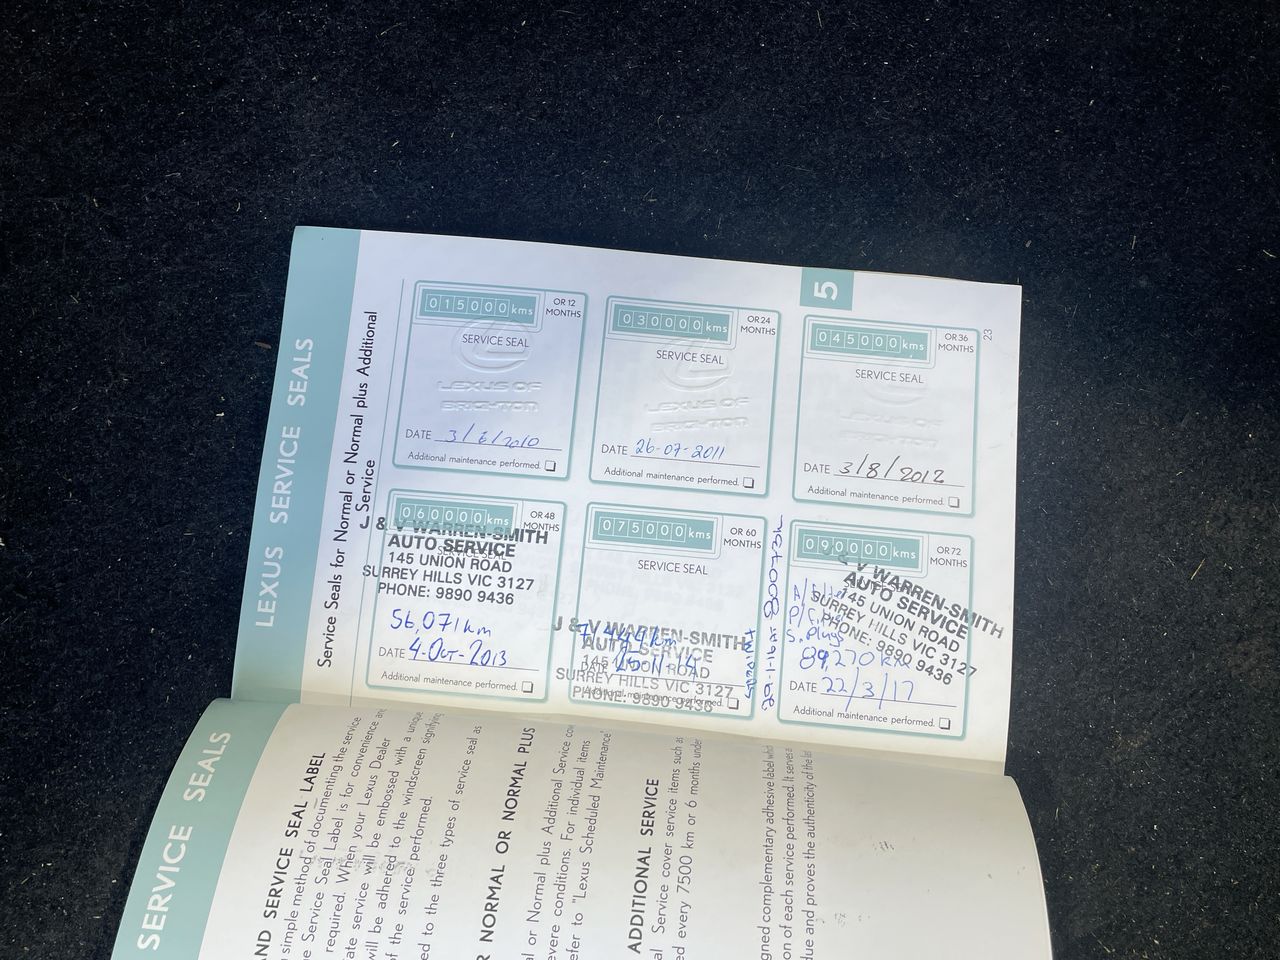 LEXUS SERVICE SEALS
Service Seals for Normal or Normal plus Additional
Service
5
23
015000 kms
OR 12
MONTHS
SERVICE SEAL
LEXUS OF
BRIGHTON
DATE 3/8/2010
Additional maintenance performed.
030000 kms
OR 24
MONTHS
SERVICE SEAL
LEXUS OF
BRIGHTON
DATE 26-07-2011
Additional maintenance performed.
045000 kms
OR 36
MONTHS
SERVICE SEAL
LEXUS OF
BRIGHTON
DATE 3/8/2012
Additional maintenance performed.
060000 kms
OR 48
MONTHS
J & V WARREN-SMITH
AUTO SERVICE
145 UNION ROAD
SURREY HILLS VIC 3127
PHONE: 9890 9436
56,071km
DATE 4-Oct-2013
Additional maintenance performed.
075000 kms
OR 60
MONTHS
SERVICE SEAL
J & V WARREN-SMITH
AUTO SERVICE
145 UNION ROAD
SURREY HILLS VIC 3127
PHONE: 9890 9436
Additional maintenance performed.
29-1-16 AT 80073km
090000 kms
OR 72
MONTHS
& V WARREN-SMITH
AUTO SERVICE
145 UNION ROAD
SURREY HILLS VIC 3127
PHONE: 9890 9436
S. Plugs
89,270 km
DATE 22/3/17
Additional maintenance performed.
SERVICE SEALS
AND SERVICE SEAL LABEL
simple method of documenting the service
Service Seal Label is for convenience
required. When your Lexus Dealer
service will be embossed with a unique
will be adhered to the windscreen signifying
of the service performed.
to the three types of service seal as
NORMAL OR NORMAL PLUS
or Normal plus Additional Service
conditions. For individual items
refer to "Lexus Scheduled Maintenance"
ADDITIONAL SERVICE
Service cover service items such as
every 7500 km or 6 months under
complementary adhesive label
of each service performed. It
due and proves the authenticity of the